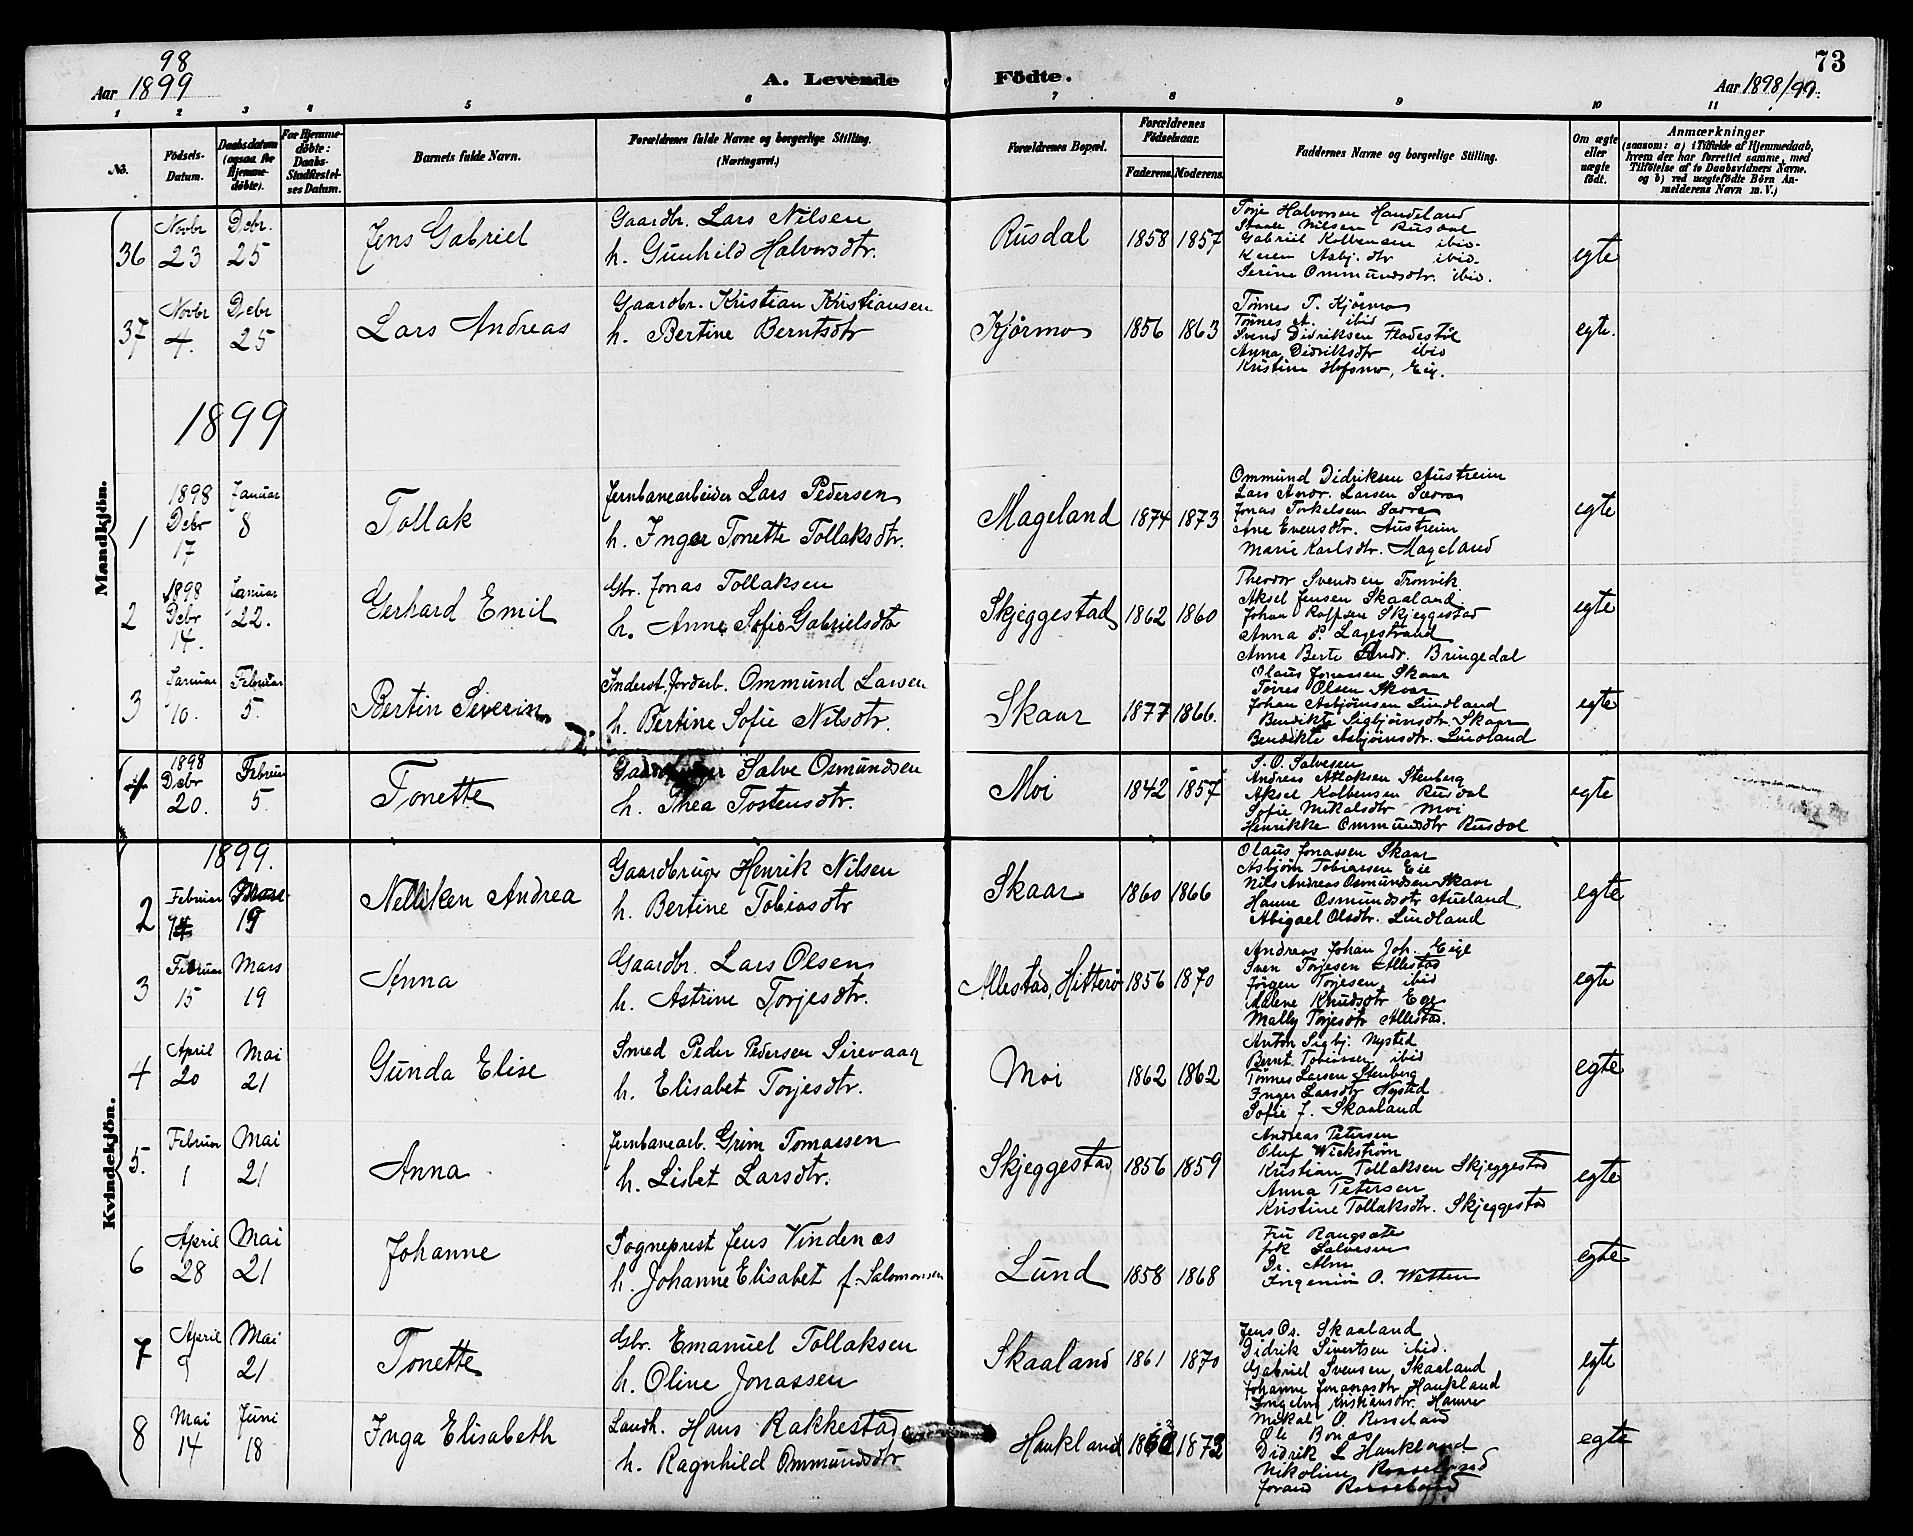 98
Aar 1899
A. Levende Födte.
Aar 1898/99.
73
1 2 3 4 5 6 7 8 9 10 11
No.
Födsels-Datum.
Daabsdatum (ogsaa for Hjemmedöbte).
For Hjemmedöbte: Daabs-Stadfæstelses Datum.
Barnets fulde Navn.
Forældrenes fulde Navne og borgerlige Stilling.
(Næringsvei.)
Forældrenes Bopæl.
Forældrenes Födselsaar.
Faderens. Moderens.
Faddernes Navne og borgerlige Stilling.
Om ægte eller uægte født.
Anmærkninger
(saasom: a) i Tilfælde af Hjemmedaab, hvem der har forrettet samme, med Tilföielse af to Daabsvidners Navne. og b) ved uægtefödte Börn Anmelderens Navn m. V.)
Mandkjön.
36 Novbr 23 Debr. 25 Jens Gabriel
Gaardbr. Lars Nilsen
h. Gunhild Halvorsdtr.
Rusdal 1858 1857
Torje Halvorsen Handeland
Nilsen Rusdal
Gabriel Kolbensen ibid.
Karen Asbj. dtr ibid.
Serine Ommundsdtr. ibid.
egte
37 Novbr 4. Debr 25 Lars Andreas
Gaardbr. Kristian Kristiansen
h. Bertine Berntsdtr
Kjörmo 1856 1863
Tönnes T. Kjörmo
Tönnes A. ibid
Svend Didriksen Fladestöl
Anna Didriksdtr ibid
Kristine Hofsmo, Eig.
egte.
1899
1 1898 Debr 17 Januar 8 Tollak
Jernbanearbeider Lars Pedersen
h. Inger Tonette Tollaksdtr.
Mageland 1874 1873
Ommund Didriksen Austreim
Lars Andr. Larsen
Jonas Torkelsen
Ane Evensdtr. Austreim
Marie Karlsdtr. Mageland
egte
2 1898 Debr 14. Januar 22. Gerhard Emil
Gbr. Jonas Tollaksen
h. Anne Sofie Gabrielsdtr
Skjeggestad 1862 1860
Theodor Svendsen Tronvik
Aksel Jensen Skaaland
Johan Skjeggestad
Anna P. Lagestrand
Anna Berte Andr. Bringedal
egte
3 Januar 10. Februar 5. Bertin Severin
Inderst. Jordarb. Ommund Larsen
h. Bertine Sofie Nilsdtr.
Skaar 1877 1866.
Olaus Jonassen Skaar
Töres Olsen Skaar
Johan Asbjörnsen Lindland
Bendikte Sigbjörnsdtr. Skaar
Bendikte Asbjörnsdtr. Lindland
egte
1 1898 Debr 20. Februar 5. Tonette
Salve Osmundsen
h. Thea Tostensdtr.
Moi 1842 1857
S. O. Salvesen
Andreas Atlaksen Stenberg
Aksel Kolbensen Rusdal
Sofie Mikalsdtr Moi
Henrikke Ommundsdtr Rusdal
egte
Kvindekjön.
1899.
2 Februar 14 Mars 19 Nelliken Andrea
Gaardbruger Henrik Nilsen
h. Bertine Tobiasdtr
Skaar 1860 1866
Olaus Jonassen Skaar
Asbjörn Tobiassen Eie
Nils Andreas Osmundsen Skaar
Hanne Osmundsdtr Aueland
Abigael Olsdtr. Lindland
egte
3 Februar 15 Mars 19 Anna
Gaardbr. Lars Olsen
h. Astrine Torjesdtr.
Allestad, Hitterö 1856 1870
Andreas Johan Joh. Eige
Sven Torjesen Allestad
Jörgen Torjesen ibid
Malene Knudsdtr Ege
Mally Torjesdtr Allestad.
egte
4 April 20 Mai 21 Gunda Elise
Smed Peder Pedersen Sirevaag
h. Elisabet Torjesdtr.
Moi 1862 1862
Anton Sigbj. Nysted
Bernt Tobiassen ibid
Tönnes Larsen Stenberg
Inger Larsdtr Nysted
Sofie J. Skaaland
egte
5. Februar 1 Mai 21 Anna
Jernbanearb. Grim Tomassen
h. Lisbet Larsdtr.
Skjeggestad 1856 1859
Andreas Petersen
Oluf Wickström
Kristian Tollaksen Skjeggestad
Anna Petersen
Kristine Tollaksdtr. Skjeggestad
egte
6 April 28 Mai 21 Johanne
Sogneprest Jens Vindenes
h. Johanne Elisabet f. Salomonsen
Lund 1858 1868
Fru Rangsæter
frk Salvesen
Dr. Alm
Ingeniör O. Wetten
egte
7 April 9 Mai 21 Tonette
Gbr. Emanuel Tollaksen
h. Oline Jonassen
Skaaland 1861 1870
Jens Os. Skaaland
Didrik Sivertsen ibid.
Gabriel Svensen Skaaland
Johanne Jonasdtr Haukland
Ingeborg Kristiansdtr. Hamre
egte
8 Mai 14 Juni 18 Inga Elisabeth
Landh. Hans Rakkestad
h. Ragnhild Ommundsdtr
Haukland 1872
Mikal O. Rosseland
Ole Bonæs
Didrik L Haukland
Nikoline Rosseland
Jorand Rosseland
egte